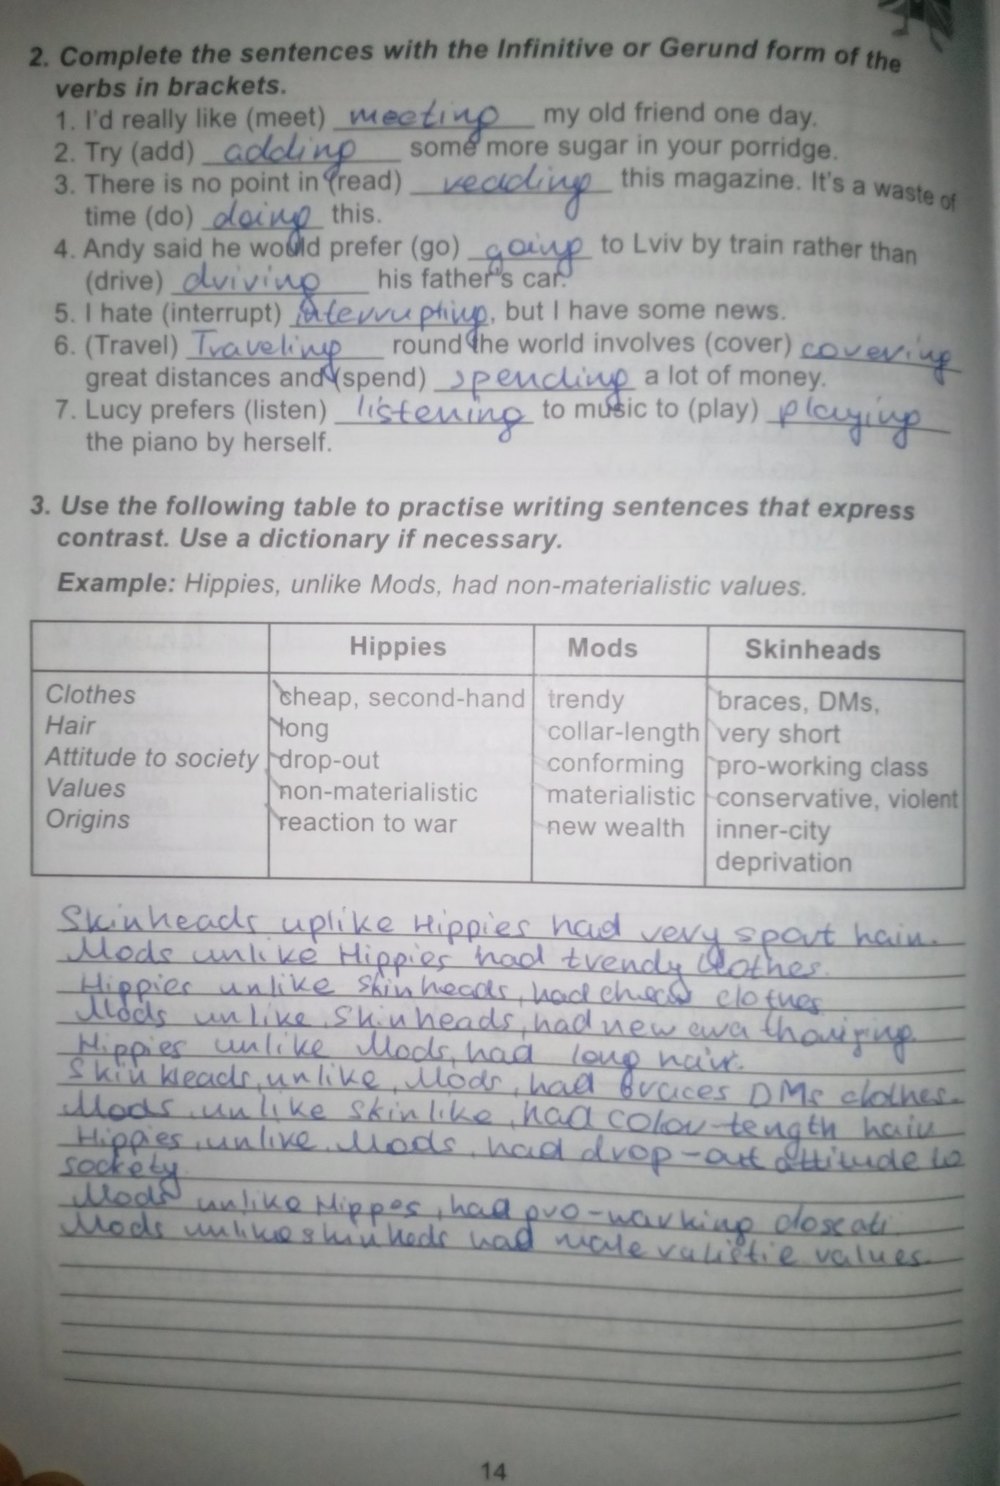 2. Complete the sentences with the Infinitive or Gerund form of the
verbs in brackets.
1. I'd really like (meet) meeting my old friend one day.
2. Try (add) adding some more sugar in your porridge.
3. There is no point in (read) reading this magazine. It's a waste of
time (do) doing this.
4. Andy said he would prefer (go) going to Lviv by train rather than
(drive) driving his father's car.
5. I hate (interrupt) interrupting, but I have some news.
6. (Travel) Traveling round the world involves (cover) covering
great distances and (spend) spending a lot of money.
7. Lucy prefers (listen) listening to music to (play) playing
the piano by herself.
3. Use the following table to practise writing sentences that express
contrast. Use a dictionary if necessary.
Example: Hippies, unlike Mods, had non-materialistic values.
Hippies Mods Skinheads
Clothes cheap, second-hand trendy braces, DMs,
Hair long collar-length very short
Attitude to society drop-out conforming pro-working class
Values non-materialistic materialistic conservative, violent
Origins reaction to war new wealth inner-city
deprivation
Skinheads uplike Hippies had very sport hain.
Mods unlike Hippies had trendy clothes.
Hippies unlike Skinheads, had clothes
Mods unlike Skinheads, had new
Hippies unlike Mods, had long hair.
Skinheads, unlike, Mods, had braces DMs clothes.
Mods, unlike skinlike, had colou-tength hair
Hippies, unlike, Mods, had drop-out attitude to
sockety.
Mods unlike Hippes, had pro-warking
Mods unlike had values.
14